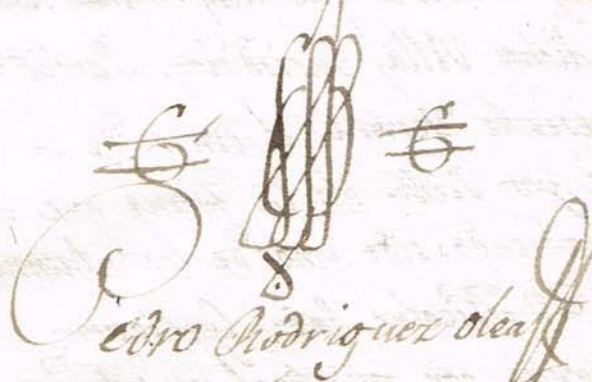 Pedro Rodriguez olea